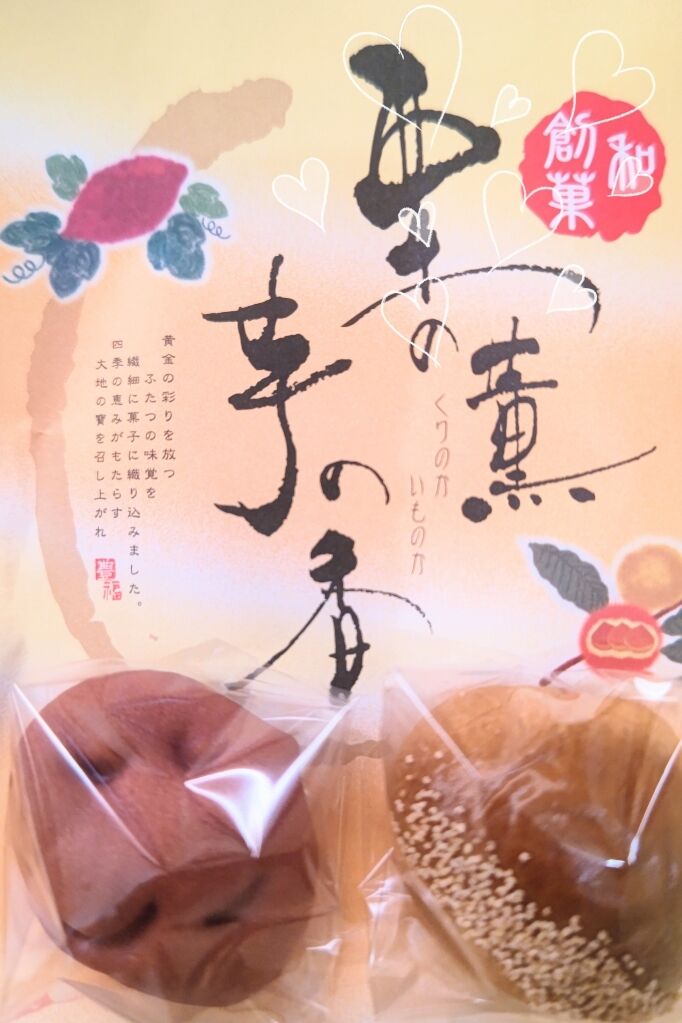 創菓
和
栗の薫
芋の香
くりのか
いものか
黄金の彩りを放つ
ふたつの味覚を
繊細に菓子に織り込みました。
四季の恵みがもたらす
大地の寶を召し上がれ